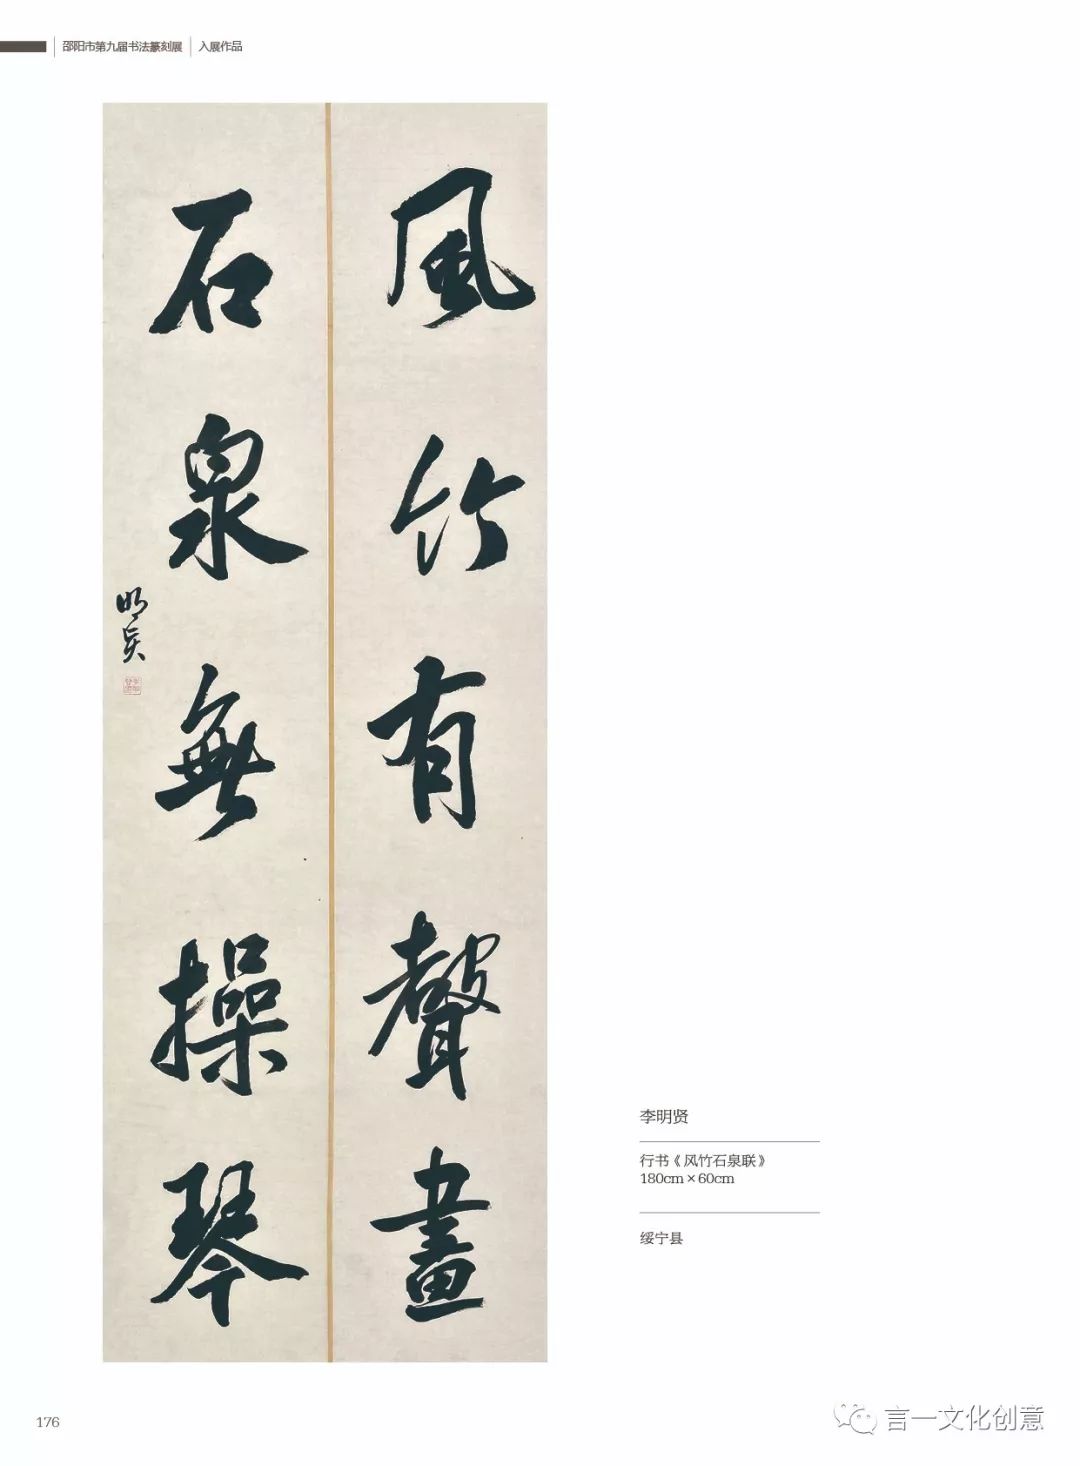 邵阳市第九届书法篆刻展 入展作品
風竹有聲畫
石泉無操琴
明贤
李明贤
行书《风竹石泉联》
180cm×60cm
绥宁县
176
言一文化创意